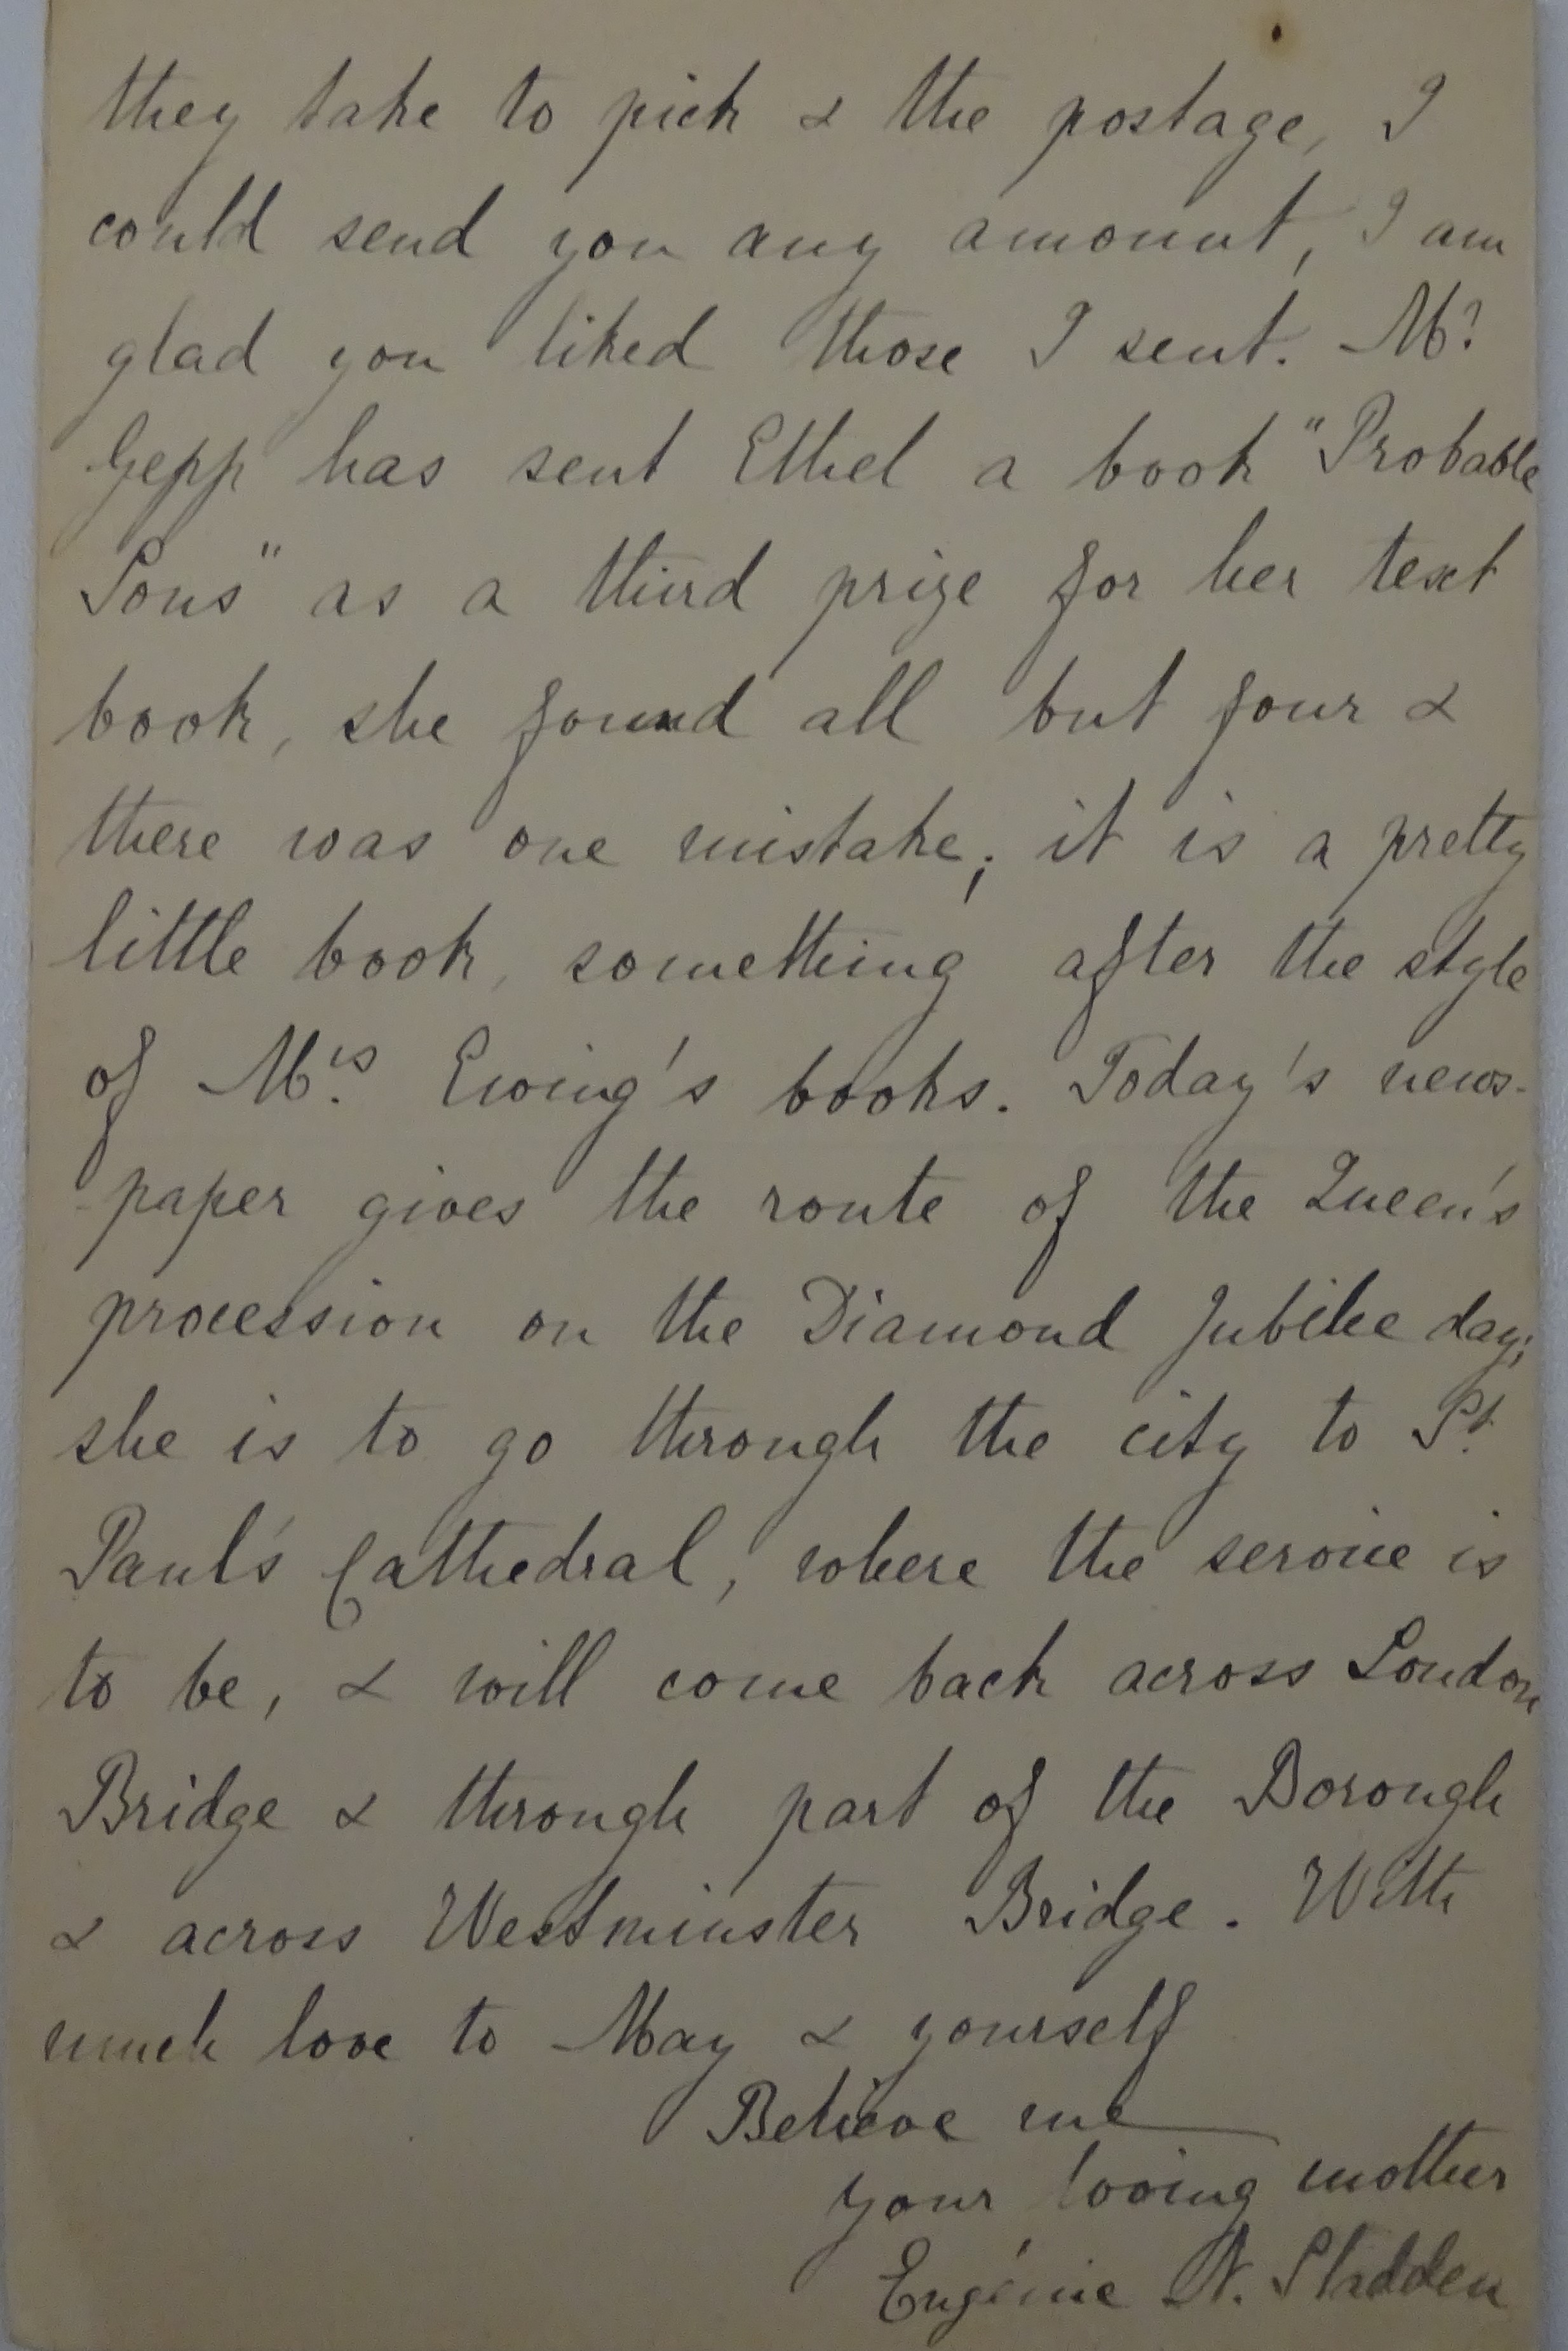 they take to pick & the postage, I
could send you any amount, I am
glad you liked those I sent. Mr.
Gepp has sent Ethel a book "Probable
Sons" as a third prize for her text
book, she found all but four &
there was one mistake; it is a pretty
little book, something after the style
of Mrs. Ewing's books. Today's news-
-paper gives the route of the Queen's
procession on the Diamond Jubilee day;
she is to go through the city to St.
Paul's Cathedral, where the service is
to be, & will come back across London
Bridge & through part of the Borough
& across Westminster Bridge. With
much love to May & yourself
Believe me
your loving mother
Eugénie N. Sladden